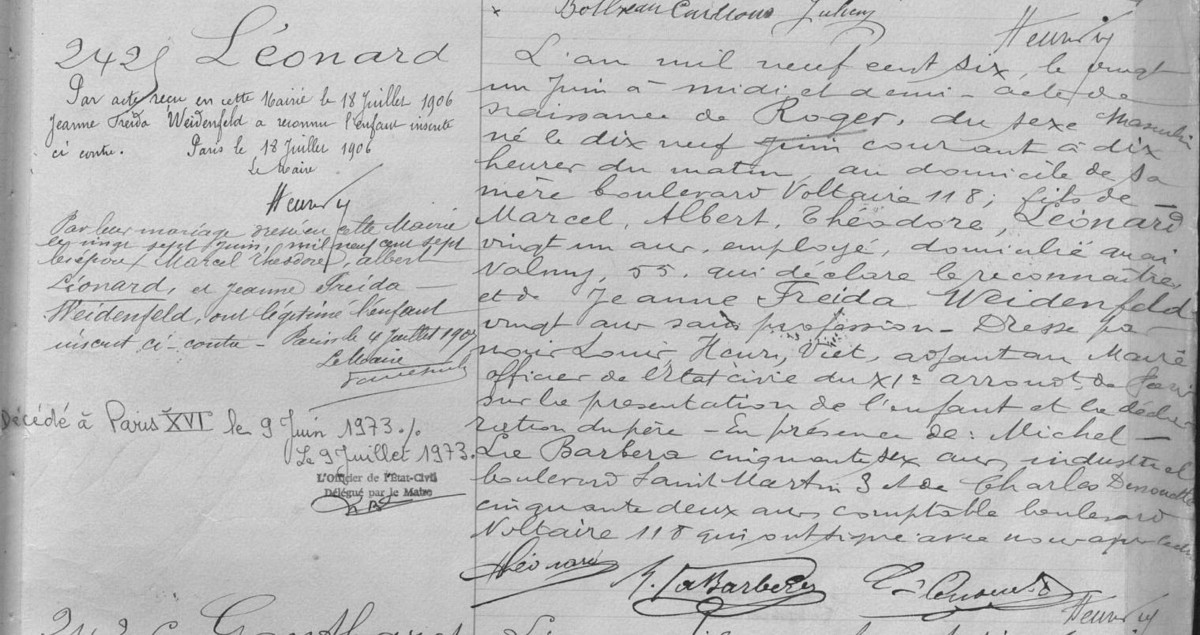 2425 Léonard
Par acte reçu en cette Mairie le 18 Juillet 1906
Jeanne Freida Weidenfeld a reconnu l'enfant inscrit
ci contre. Paris le 18 Juillet 1906
Le Maire
Par leur mariage dressé en cette Mairie
le vingt sept Juin, mil neuf cent sept
les époux Marcel Théodore, Albert
Léonard, et Jeanne Freida -
Weidenfeld, ont légitimé l'enfant
inscrit ci-contre - Paris le 4 Juillet 1907
Le Maire
Décédé à Paris XVI le 9 Juin 1973 ./.
Le 9 Juillet 1973.
L'Officier de l'Etat-Civil
Délégué par le Maire
L'an mil neuf cent six, le vingt
un Juin à midi et demi - acte de
naissance de Roger, du sexe Masculin
né le dix neuf Juin courant à dix
heures du matin, au domicile de sa
mère boulevard Voltaire 118; fils de -
Marcel, Albert, Théodore, Léonard
vingt un ans, employé, domicilié quai
Valmy, 55, qui déclare le reconnaître
et de Jeanne Freida Weidenfeld
vingt ans sans profession - Dressé par
nous Louis, Henri, Viet, adjoint au Maire
officier de l'Etat civil du XIe arrondt. de Paris
sur la présentation de l'enfant et la décla
ration du père - En présence de: Michel -
La Barbera cinquante six ans, industriel
boulevard Saint Martin 3 et de Charles
cinquante deux ans, comptable boulevard
Voltaire 118 qui ont signé avec nous après lecture
Léonard La Barbera